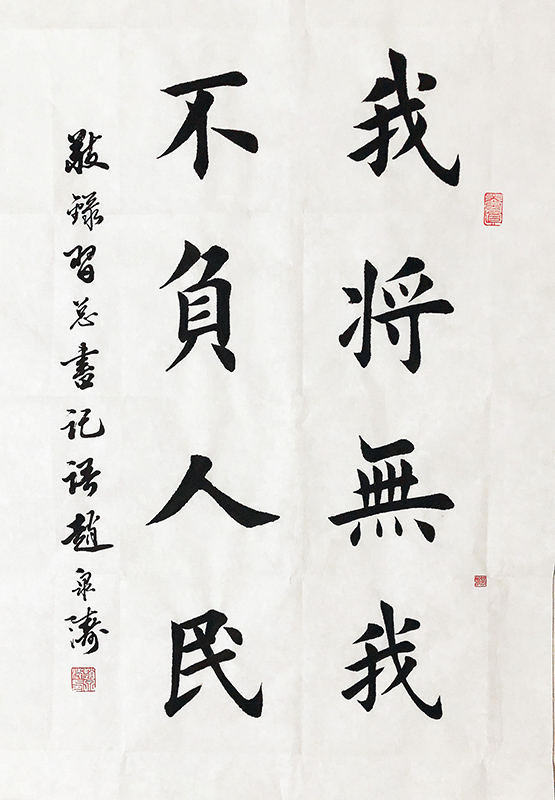 我将無我
不負人民
敬錄習总書记语趙泉濤